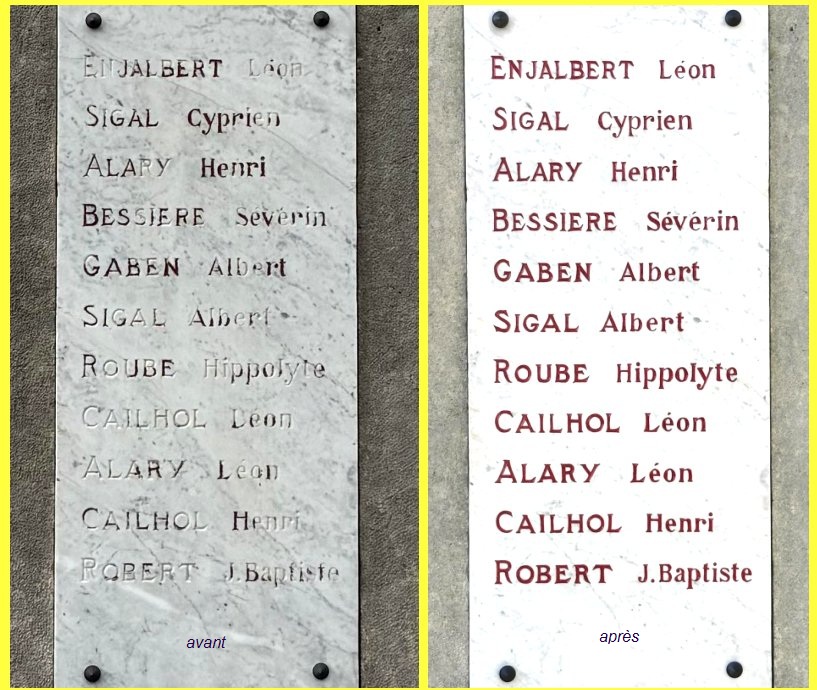 ENJALBERT Léon
SIGAL Cyprien
ALARY Henri
BESSIERE Sévérin
GABEN Albert
SIGAL Albert
ROUBE Hippolyte
CAILHOL Léon
ALARY Léon
CAILHOL Henri
ROBERT J.Baptiste
avant
ENJALBERT Léon
SIGAL Cyprien
ALARY Henri
BESSIERE Sévérin
GABEN Albert
SIGAL Albert
ROUBE Hippolyte
CAILHOL Léon
ALARY Léon
CAILHOL Henri
ROBERT J.Baptiste
après